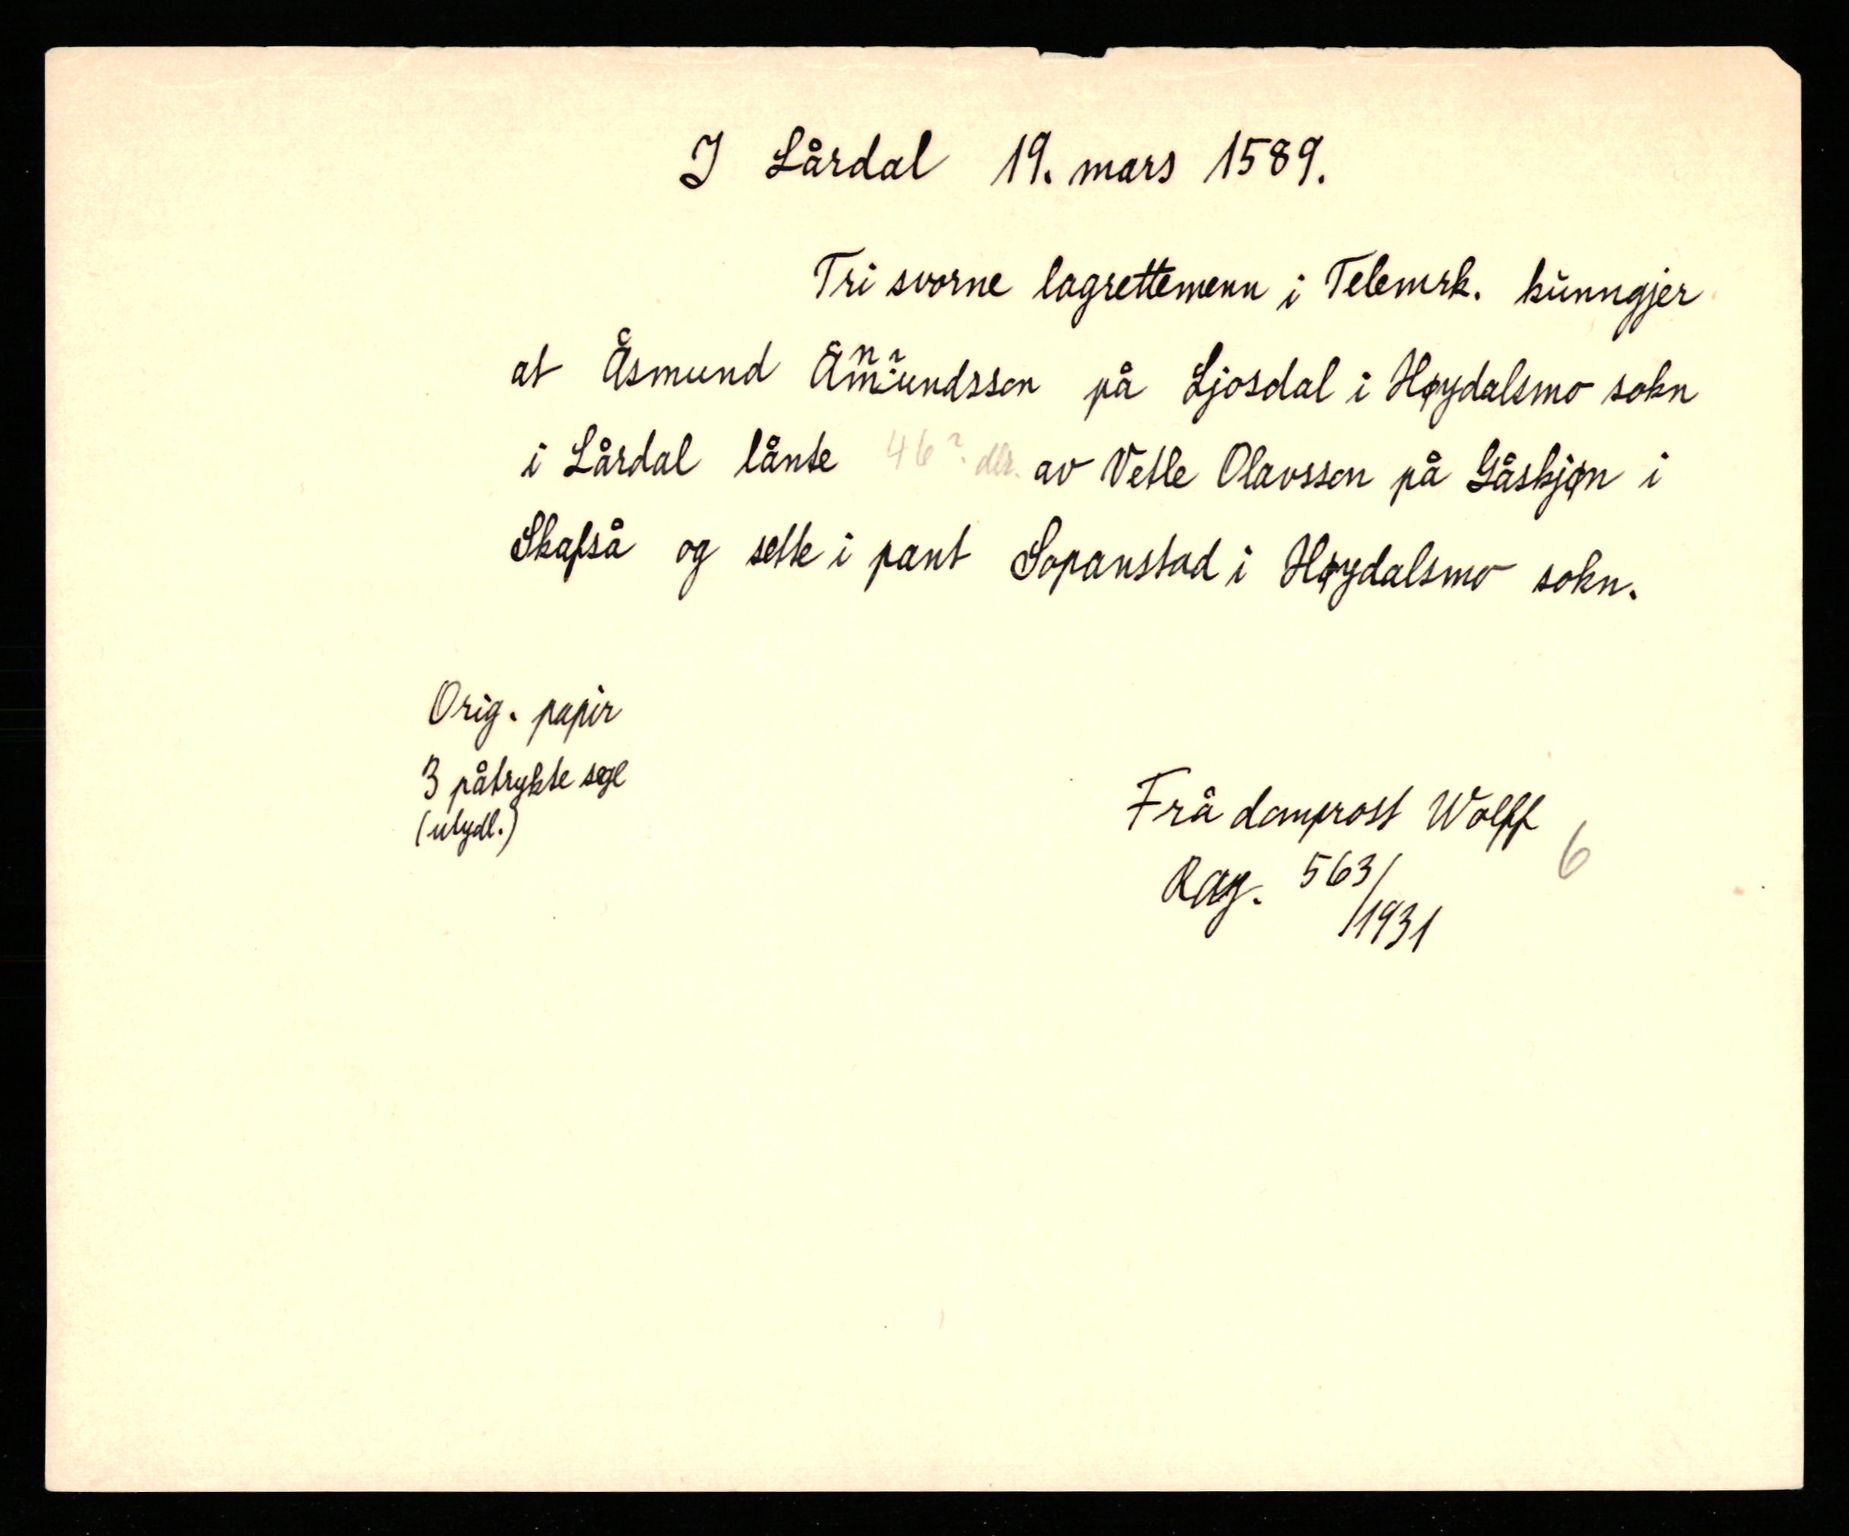 I Lårdal 19. mars 1589.
Tri svorne lagrettemenn i Telemrk. kunngjer
at Åsmund Åmundsson på Ljosdal i Høydalsmo sokn
i Lårdal lånte 46? dlr. av Vetle Olavsson på Gåskjøn i
Skafså og sette i pant Sopanstad i Høydalsmo sokn.
Orig. papir
3 påtrykte segl
(utydl.)
Frå domprost Wolff
Rag. 563/1931
6